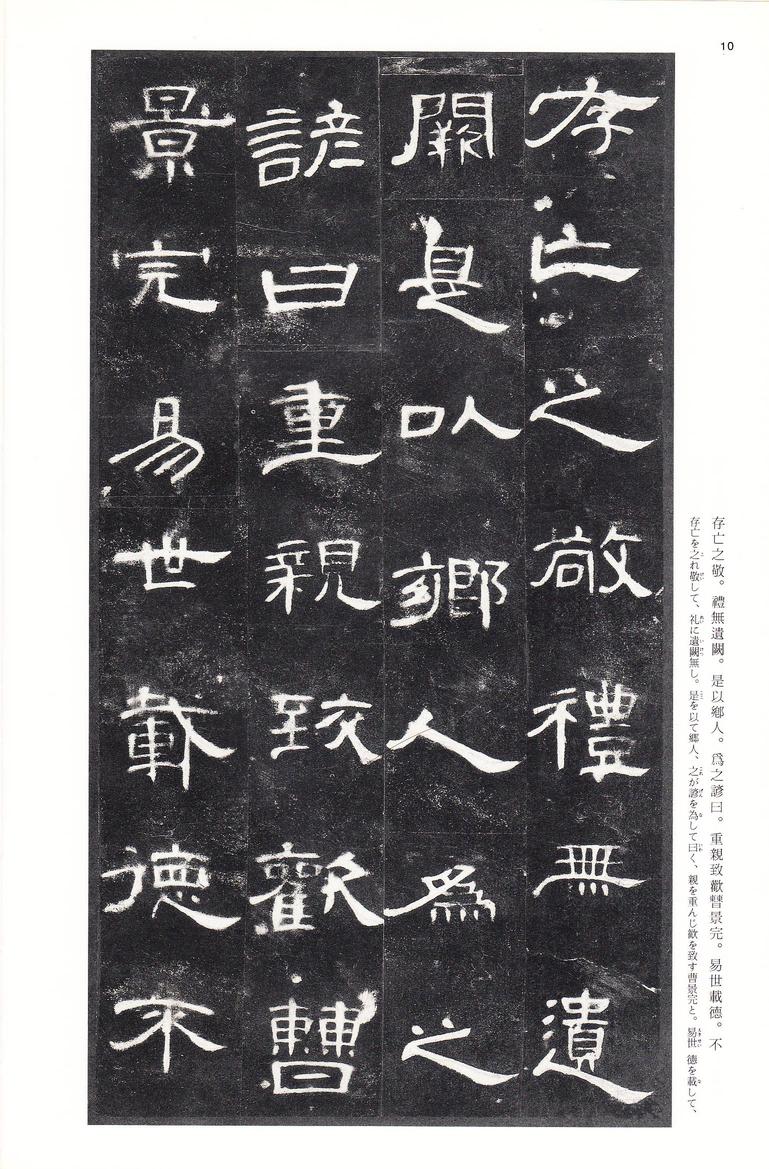 10
存亡之敬。禮無遺闕。是以鄕人。爲之諺曰。重親致歡曹景完。易世載德。不
存亡を之れ敬して、礼に遺闕無し。是を以て郷人、之が諺を為して曰く、親を重んじ歓を致す曹景完と。易世 德を載して、
存亡之敬禮無遺
闕是以鄕人爲之
諺曰重親致歡曹
景完易世載德不